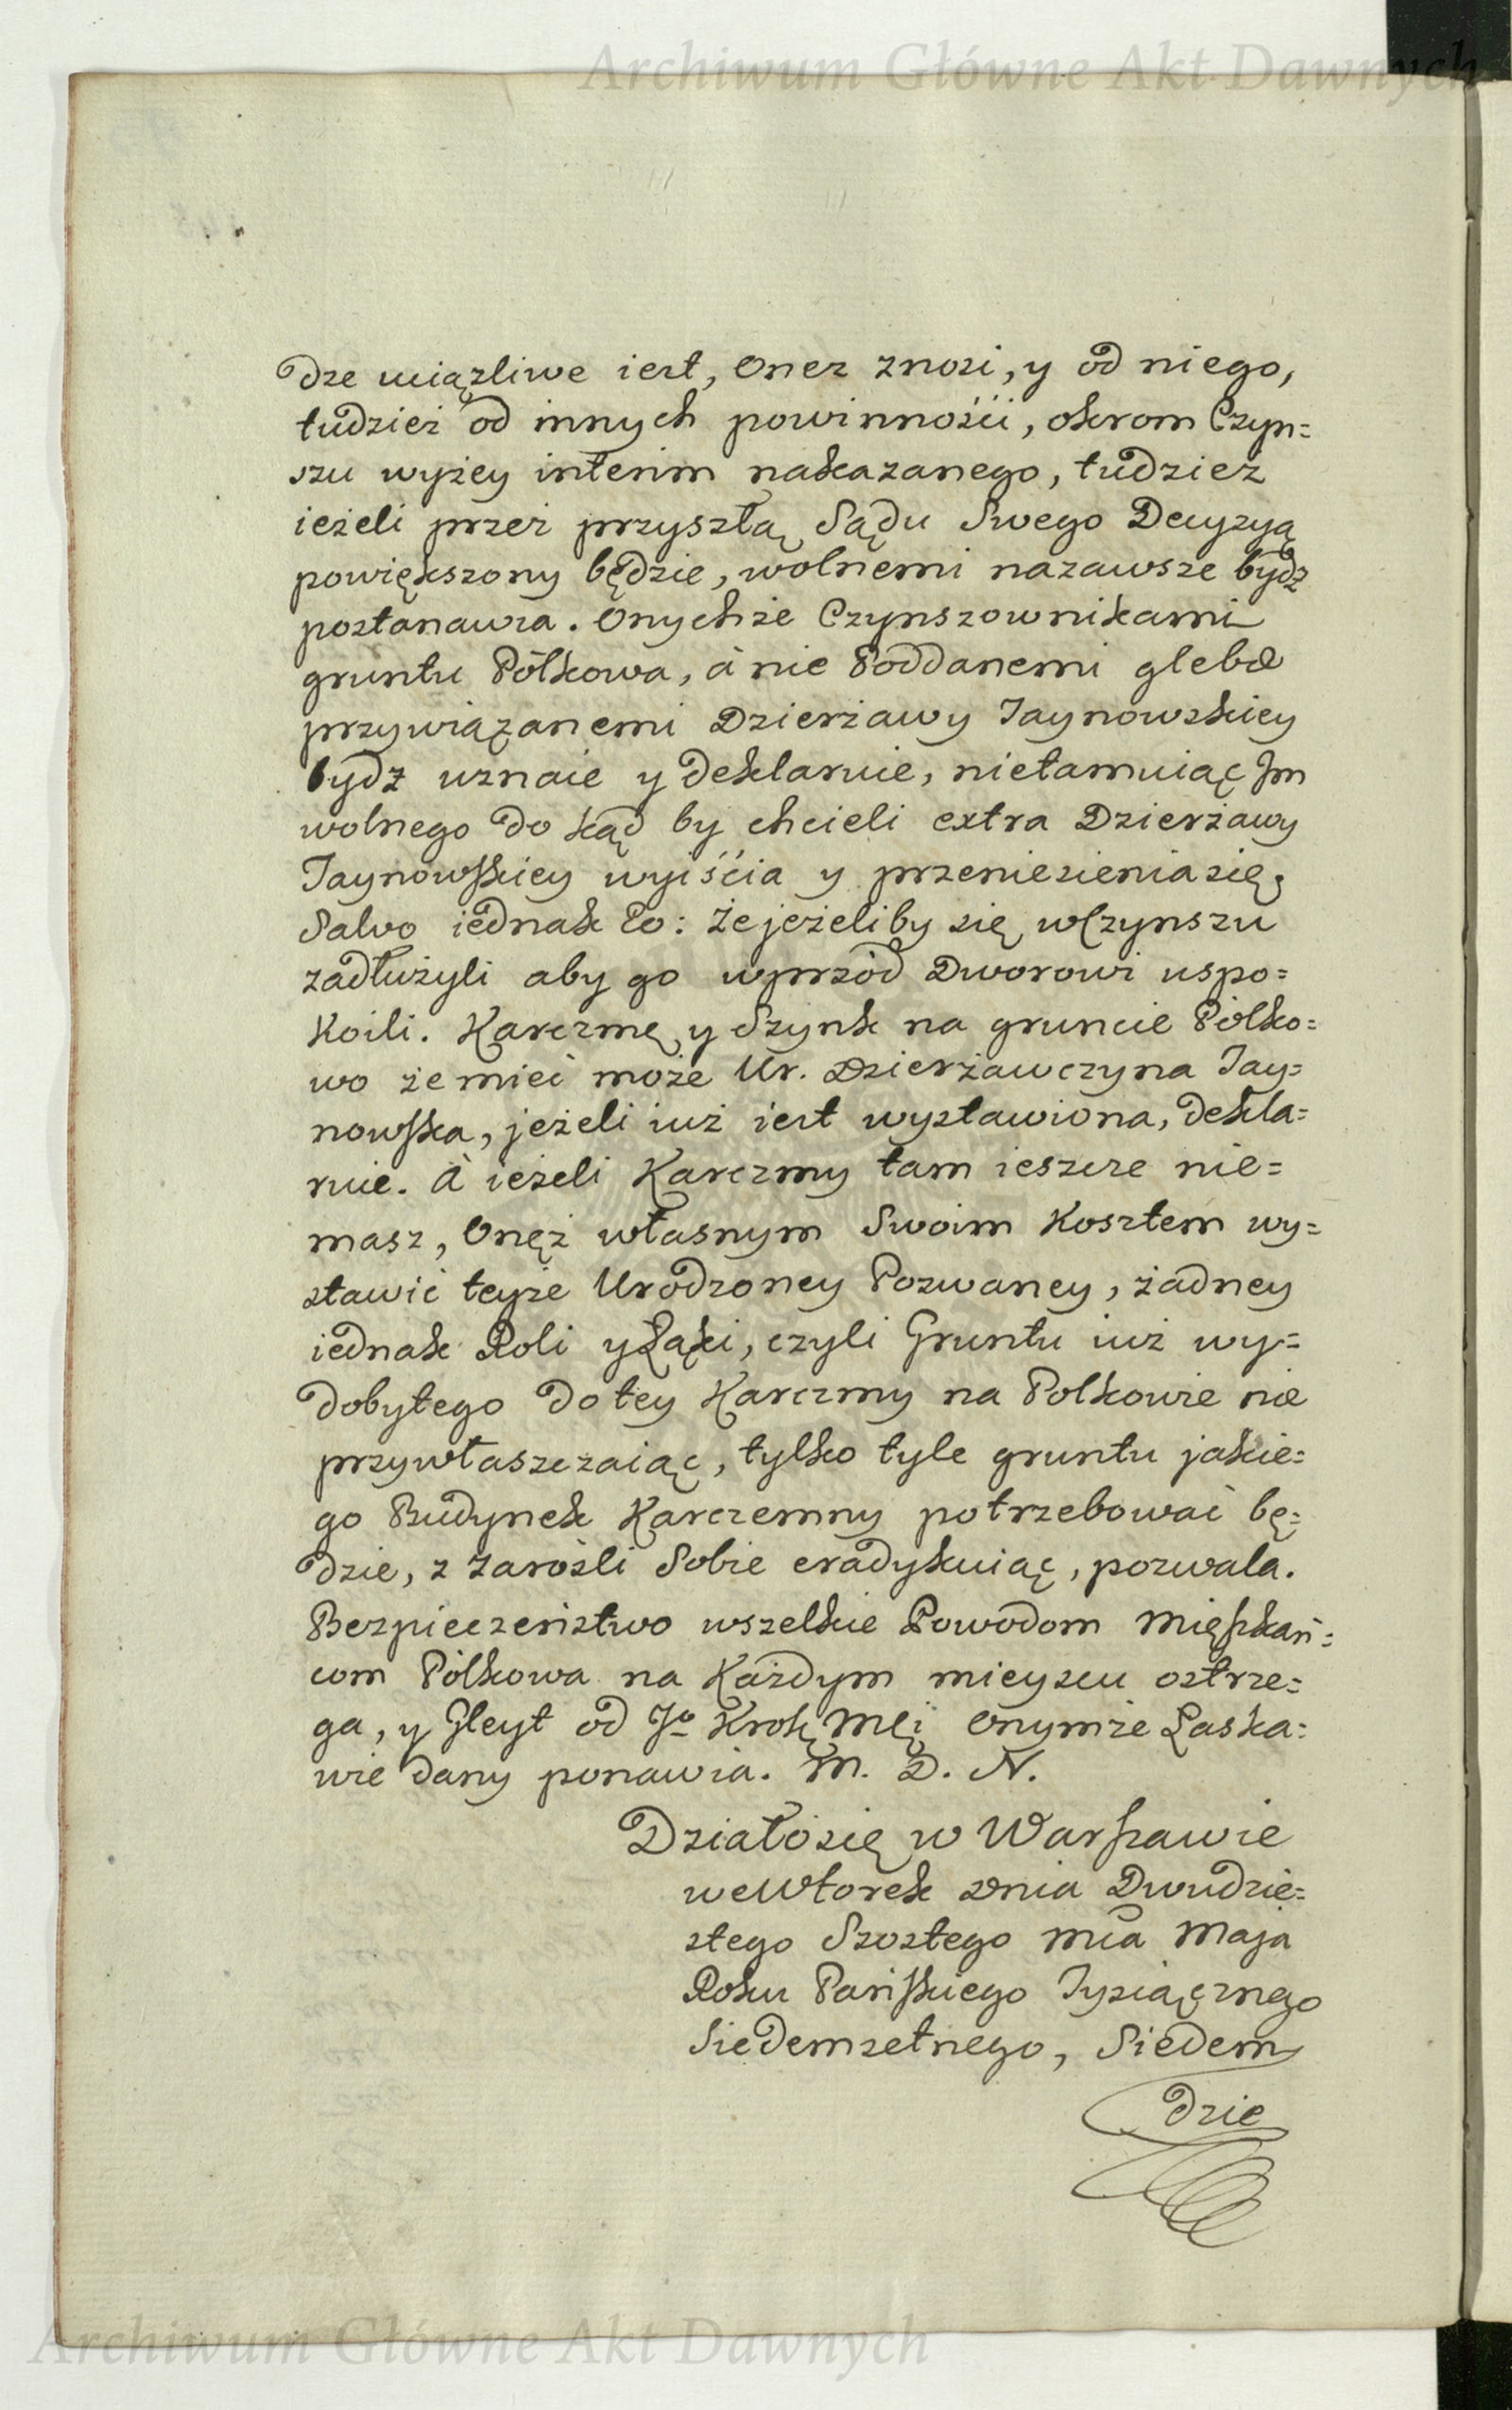 Archiwum Główne Akt Dawnych
dze uciążliwe iest, Onez znosi, y od niego,
tudzież od innych powinności, okrom Czyn=
szu wyżey interim nakazanego, tudzież
ieżeli przez przyszłą Sądu Swego Decyzyą
powiększony będzie, wolnemi nazawsze bydz
postanawia. Onychże Czynszownikami
gruntu Pólkowa, à nie Poddanemi glebæ
przywiązanemi Dzierżawy Jaynowskiey
bydz uznaie y deklaruie, nietamuiąc Jm
wolnego do kąd by chcieli extra Dzierżawy
Jaynowskiey wyiścia y przeniesienia się,
Salvo iednak Eo: że jeżeliby się w Czynszu
zadłużyli aby go wprzód Dworowi uspo=
koili. Karczmę y Szynk na gruncie Pólko=
wo że mieć może Ur. Dzierżawczyna Jay=
nowska, jeżeli iuż iest wystawiona, dekla=
ruie. À ieżeli Karczmy tam ieszcze nie=
masz, Onęż własnym Swoim Kosztem wy=
stawić teyże Urodzoney Pozwaney, żadney
iednak Roli y Łąki, czyli Gruntu iuż wy=
dobytego do tey Karczmy na Polkowie nie
przywłaszczaiąc, tylko tyle gruntu jakie=
go Budynek Karczemny potrzebować bę=
dzie, z Zarośli Sobie eradykuiąc, pozwala.
Bezpieczeństwo wszelkie Powodom Mięszkań=
com Pólkowa na Każdym mieyscu ostrze=
ga, y Gleyt od Jº Krolę Mći Onymże Łaska=
wie dany ponawia. M. D. N.
Działo się w Warszawie
we Wtorek Dnia Dwudzie=
stego Szostego Mca Maja
Roku Pańskiego Tysiącznego
Siedemsetnego, Siedem
dzie
Archiwum Główne Akt Dawnych